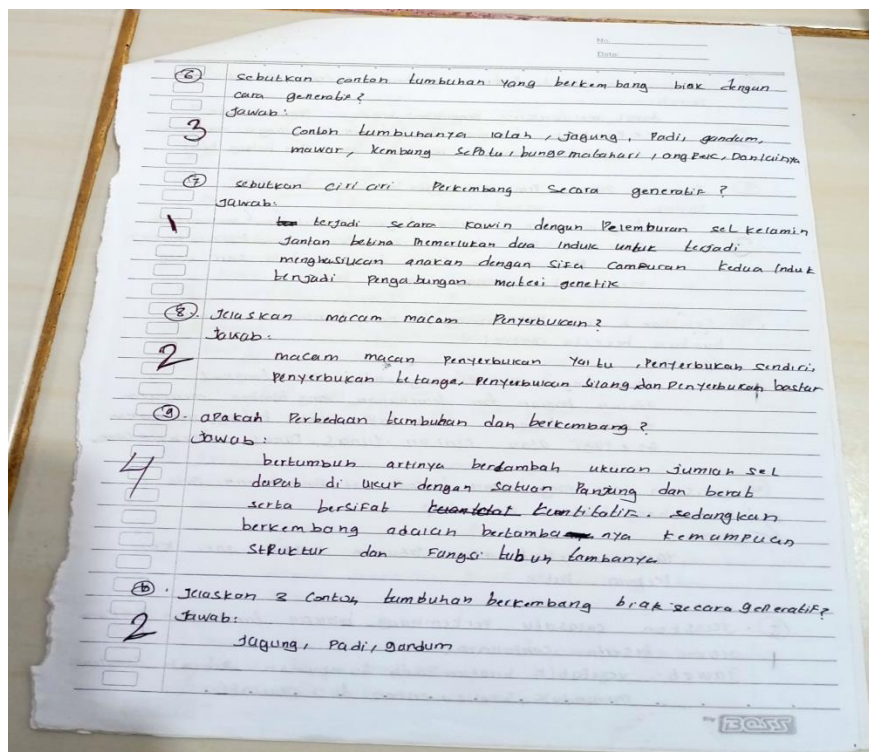 No.
Date:
6 sebutkan contoh tumbuhan yang berkembang biak dengan
cara generatif?
Jawab:
3 Contoh tumbuhanya ialah, jagung, Padi, gandum,
mawar, kembang sepatu, bunga matahari, anggrek, Dan lainya
7 sebutkan ciri ciri Perkembang secara generatif?
Jawab:
1 terjadi secara kawin dengan Peleburan sel kelamin
Jantan betina memerlukan dua induk untuk terjadi
menghasilkan anakan dengan sifa campuran kedua induk
benjadi pengabungan materi genetik
8. Jelaskan macam macam Penyerbukan?
Jawab:
2 macam macan Penyerbukan yaitu, Penyerbukan sendiri,
Penyerbukan tetanga, Penyerbukan silang dan Penyerbukan bastar
9. apakah Perbedaan tumbuhan dan berkembang?
Jawab:
4 bertumbuh artinya bertambah ukuran jumlah sel
dapat di ukur dengan satuan Panjang dan berat
serta bersifat kuntitatif. sedangkan
berkembang adalah bertamba nya kemampuan
struktur dan Fungsi tubuh tambanya
10. Jelaskan 3 Contoh tumbuhan berkembang biak secara generatif?
Jawab:
2 Jagung, Padi, gandum
By BOSS